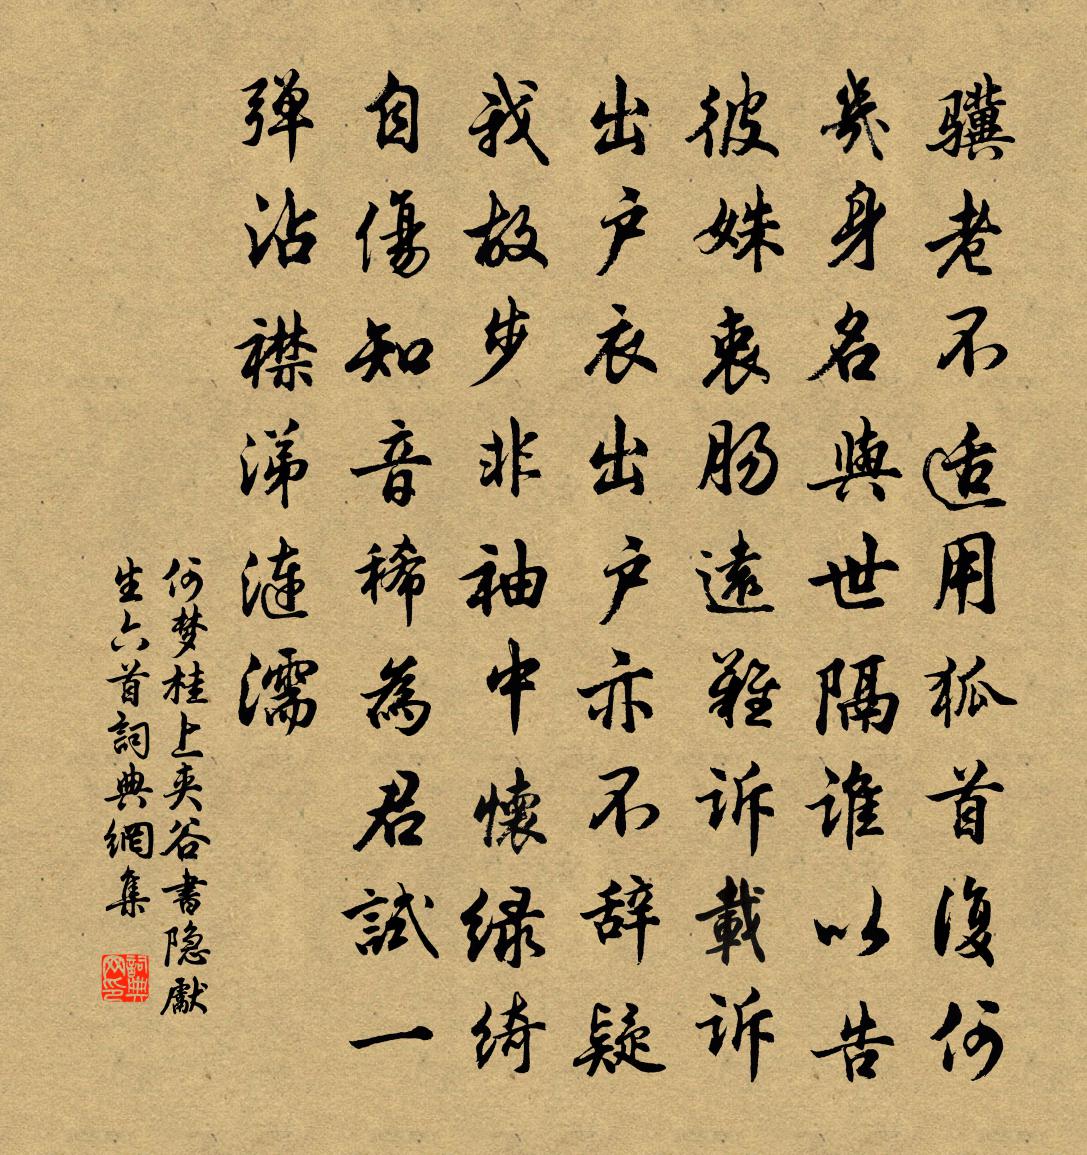 骥老不适用狐首復何
幾身名與世隔誰以告
彼姝衷腸遠難訴載訴
出户衣出户亦不辞疑
我故步非袖中懷緑绮
自傷知音稀為君試一
弹沾襟涕漣濡
何梦桂上夾谷書隐獻
生六首詞典網集
詞典网印